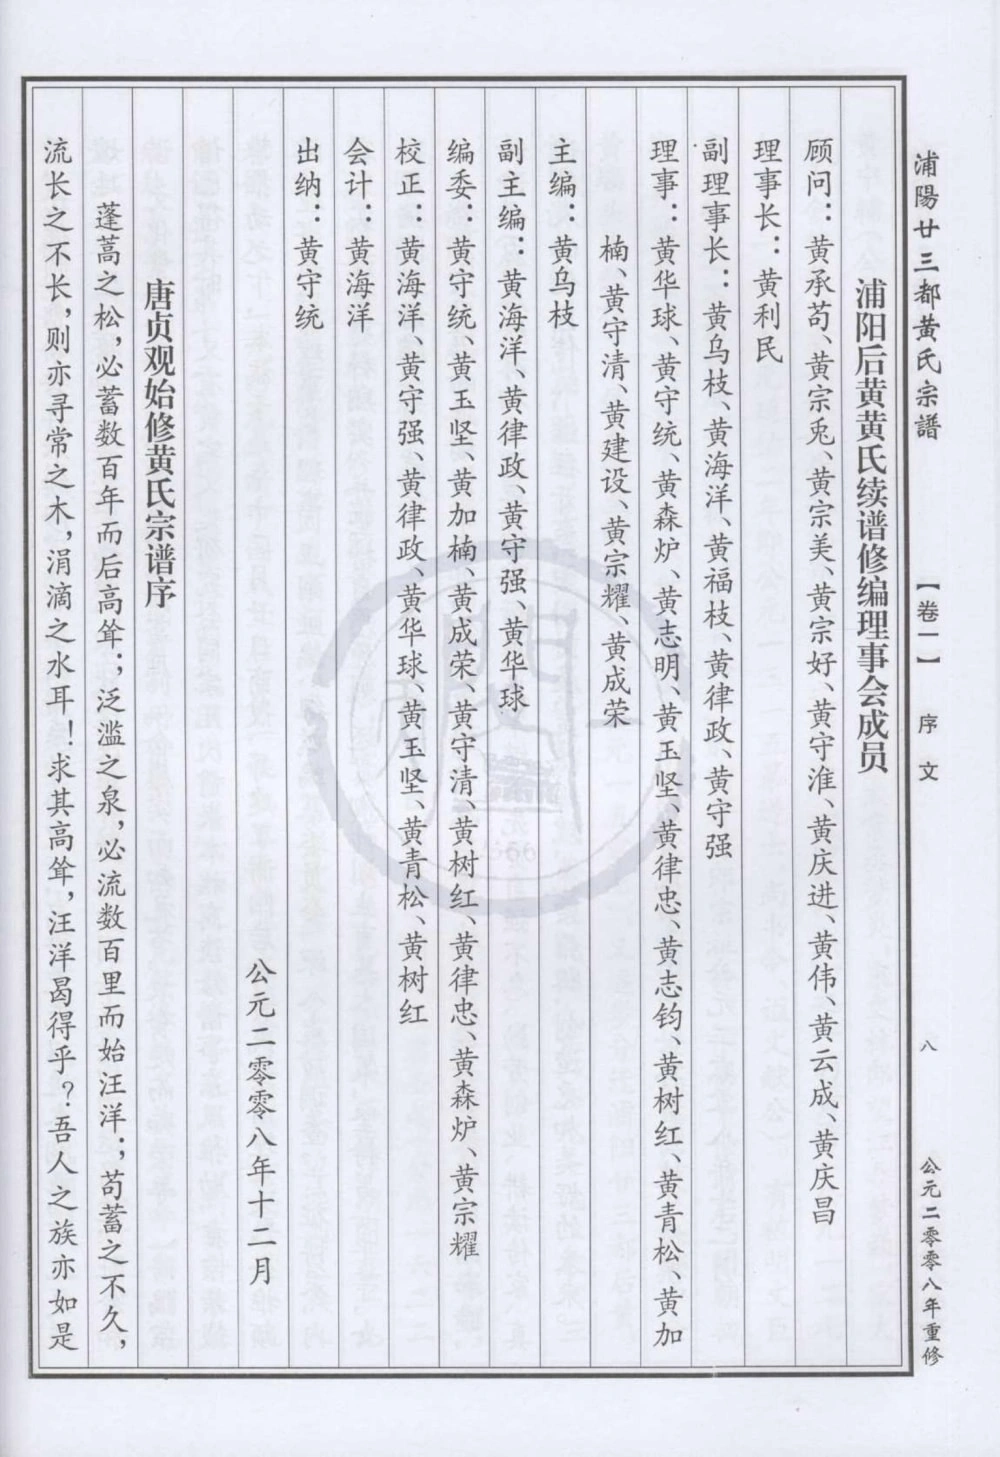 浦陽廿三都黄氏宗譜
【卷一】
序文
八
公元二零零八年重修
浦阳后黄黄氏续谱修编理事会成员
顾问：黄承苟、黄宗兎、黄宗美、黄宗好、黄守淮、黄庆进、黄伟、黄云成、黄庆昌
理事长：黄利民
副理事长：黄乌枝、黄海洋、黄福枝、黄律政、黄守强
理事：黄华球、黄守统、黄森炉、黄志明、黄玉坚、黄律忠、黄志钧、黄树红、黄青松、黄加
楠、黄守清、黄建设、黄宗耀、黄成荣
主编：黄乌枝
副主编：黄海洋、黄律政、黄守强、黄华球
编委：黄守统、黄玉坚、黄加楠、黄成荣、黄守清、黄树红、黄律忠、黄森炉、黄宗耀
校正：黄海洋、黄守强、黄律政、黄华球、黄玉坚、黄青松、黄树红
会计：黄海洋
出纳：黄守统
公元二零零八年十二月
唐贞观始修黄氏宗谱序
蓬蒿之松，必蓄数百年而后高耸；泛滥之泉，必流数百里而始汪洋；苟蓄之不久，
流长之不长，则亦寻常之木，涓滴之水耳！求其高耸，汪洋曷得乎？吾人之族亦如是